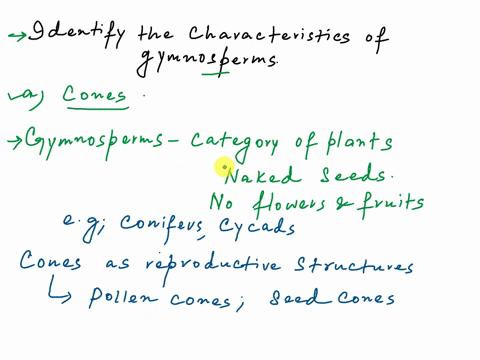 → Identify the characteristics of
gymnosperms.
✓a) Cones.
→ Gymnosperms - category of plants
Naked seeds.
No flowers & fruits
e.g; conifers, cycads
Cones as reproductive structures
↳ pollen cones; seed cones